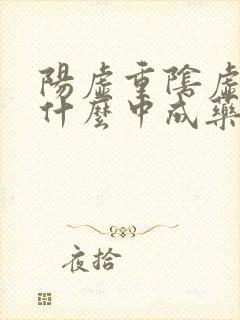 陽虛重陰虛
什麼中成藥
夜拾